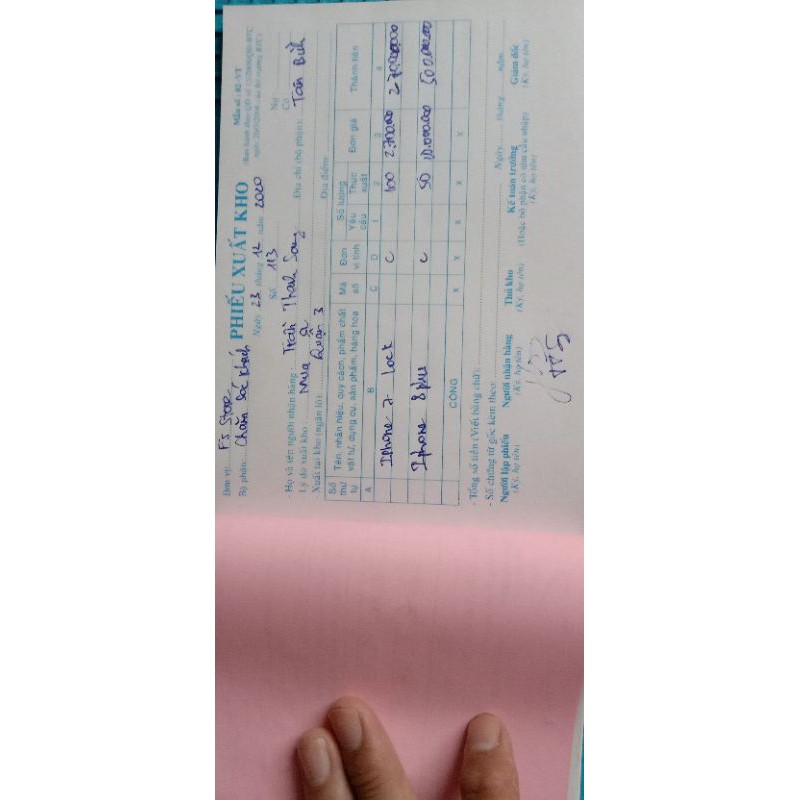 Đơn vị: F5 Store
Bộ phận: Chăm Sóc Khách
PHIẾU XUẤT KHO
Ngày 23 tháng 12 năm 2020
Số: 113
Mẫu số: 02-VT
Nợ
Có
- Họ và tên người nhận hàng: Trần Thanh Sang Địa chỉ (bộ phận): Tân Bình
- Lý do xuất kho: Mua
Xuất tại kho (ngăn lô): Quận 3 Địa điểm:
Số thứ tự Tên, nhãn hiệu, quy cách, phẩm chất vật tư, dụng cụ, sản phẩm, hàng hóa Mã số Đơn vị tính Số lượng Yêu cầu Thực xuất Đơn giá Thành tiền
A B C D 1 2 3 4
Iphone 7 Lock C 100 2.700.000 270.000.000
Iphone 8 plus C 50 10.000.000 500.000.000
CỘNG X X X X X
- Tổng số tiền (Viết bằng chữ):
- Số chứng từ gốc kèm theo:
Ngày tháng năm
Người lập phiếu Người nhận hàng Thủ kho Kế toán trưởng Giám đốc
(Ký, họ tên) (Ký, họ tên) (Ký, họ tên) (Hoặc bộ phận có nhu cầu nhập) (Ký, họ tên)
(Ký, họ tên)